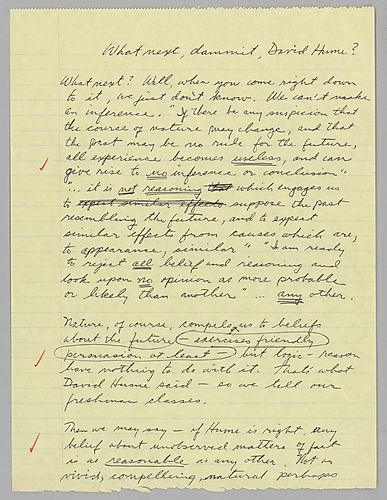 What next, dammit, David Hume?
What next? Well, when you come right down
to it, we just don't know. We can't make
an inference. "If there be any suspicion that
the course of nature may change, and that
the past may be no rule for the future,
all experience becomes useless, and can
give rise to no inference or conclusion"
... it is not reasoning that which engages us
to expect similar effects suppose the past
resembling the future, and to expect
similar effects from causes which are,
to appearance, similar" "I am ready
to reject all belief and reasoning and
look upon no opinion as more probable
or likely than another" ... any other.
Nature, of course, compels us to beliefs
about the future - exercises friendly
persuasion at least - but logic - reason
have nothing to do with it. That's what
David Hume said - so we tell our
freshman classes.
Then we may say - if Hume is right, any
belief about unobserved matters of fact
is as reasonable as any other. Not as
vivid, compelling, natural perhaps